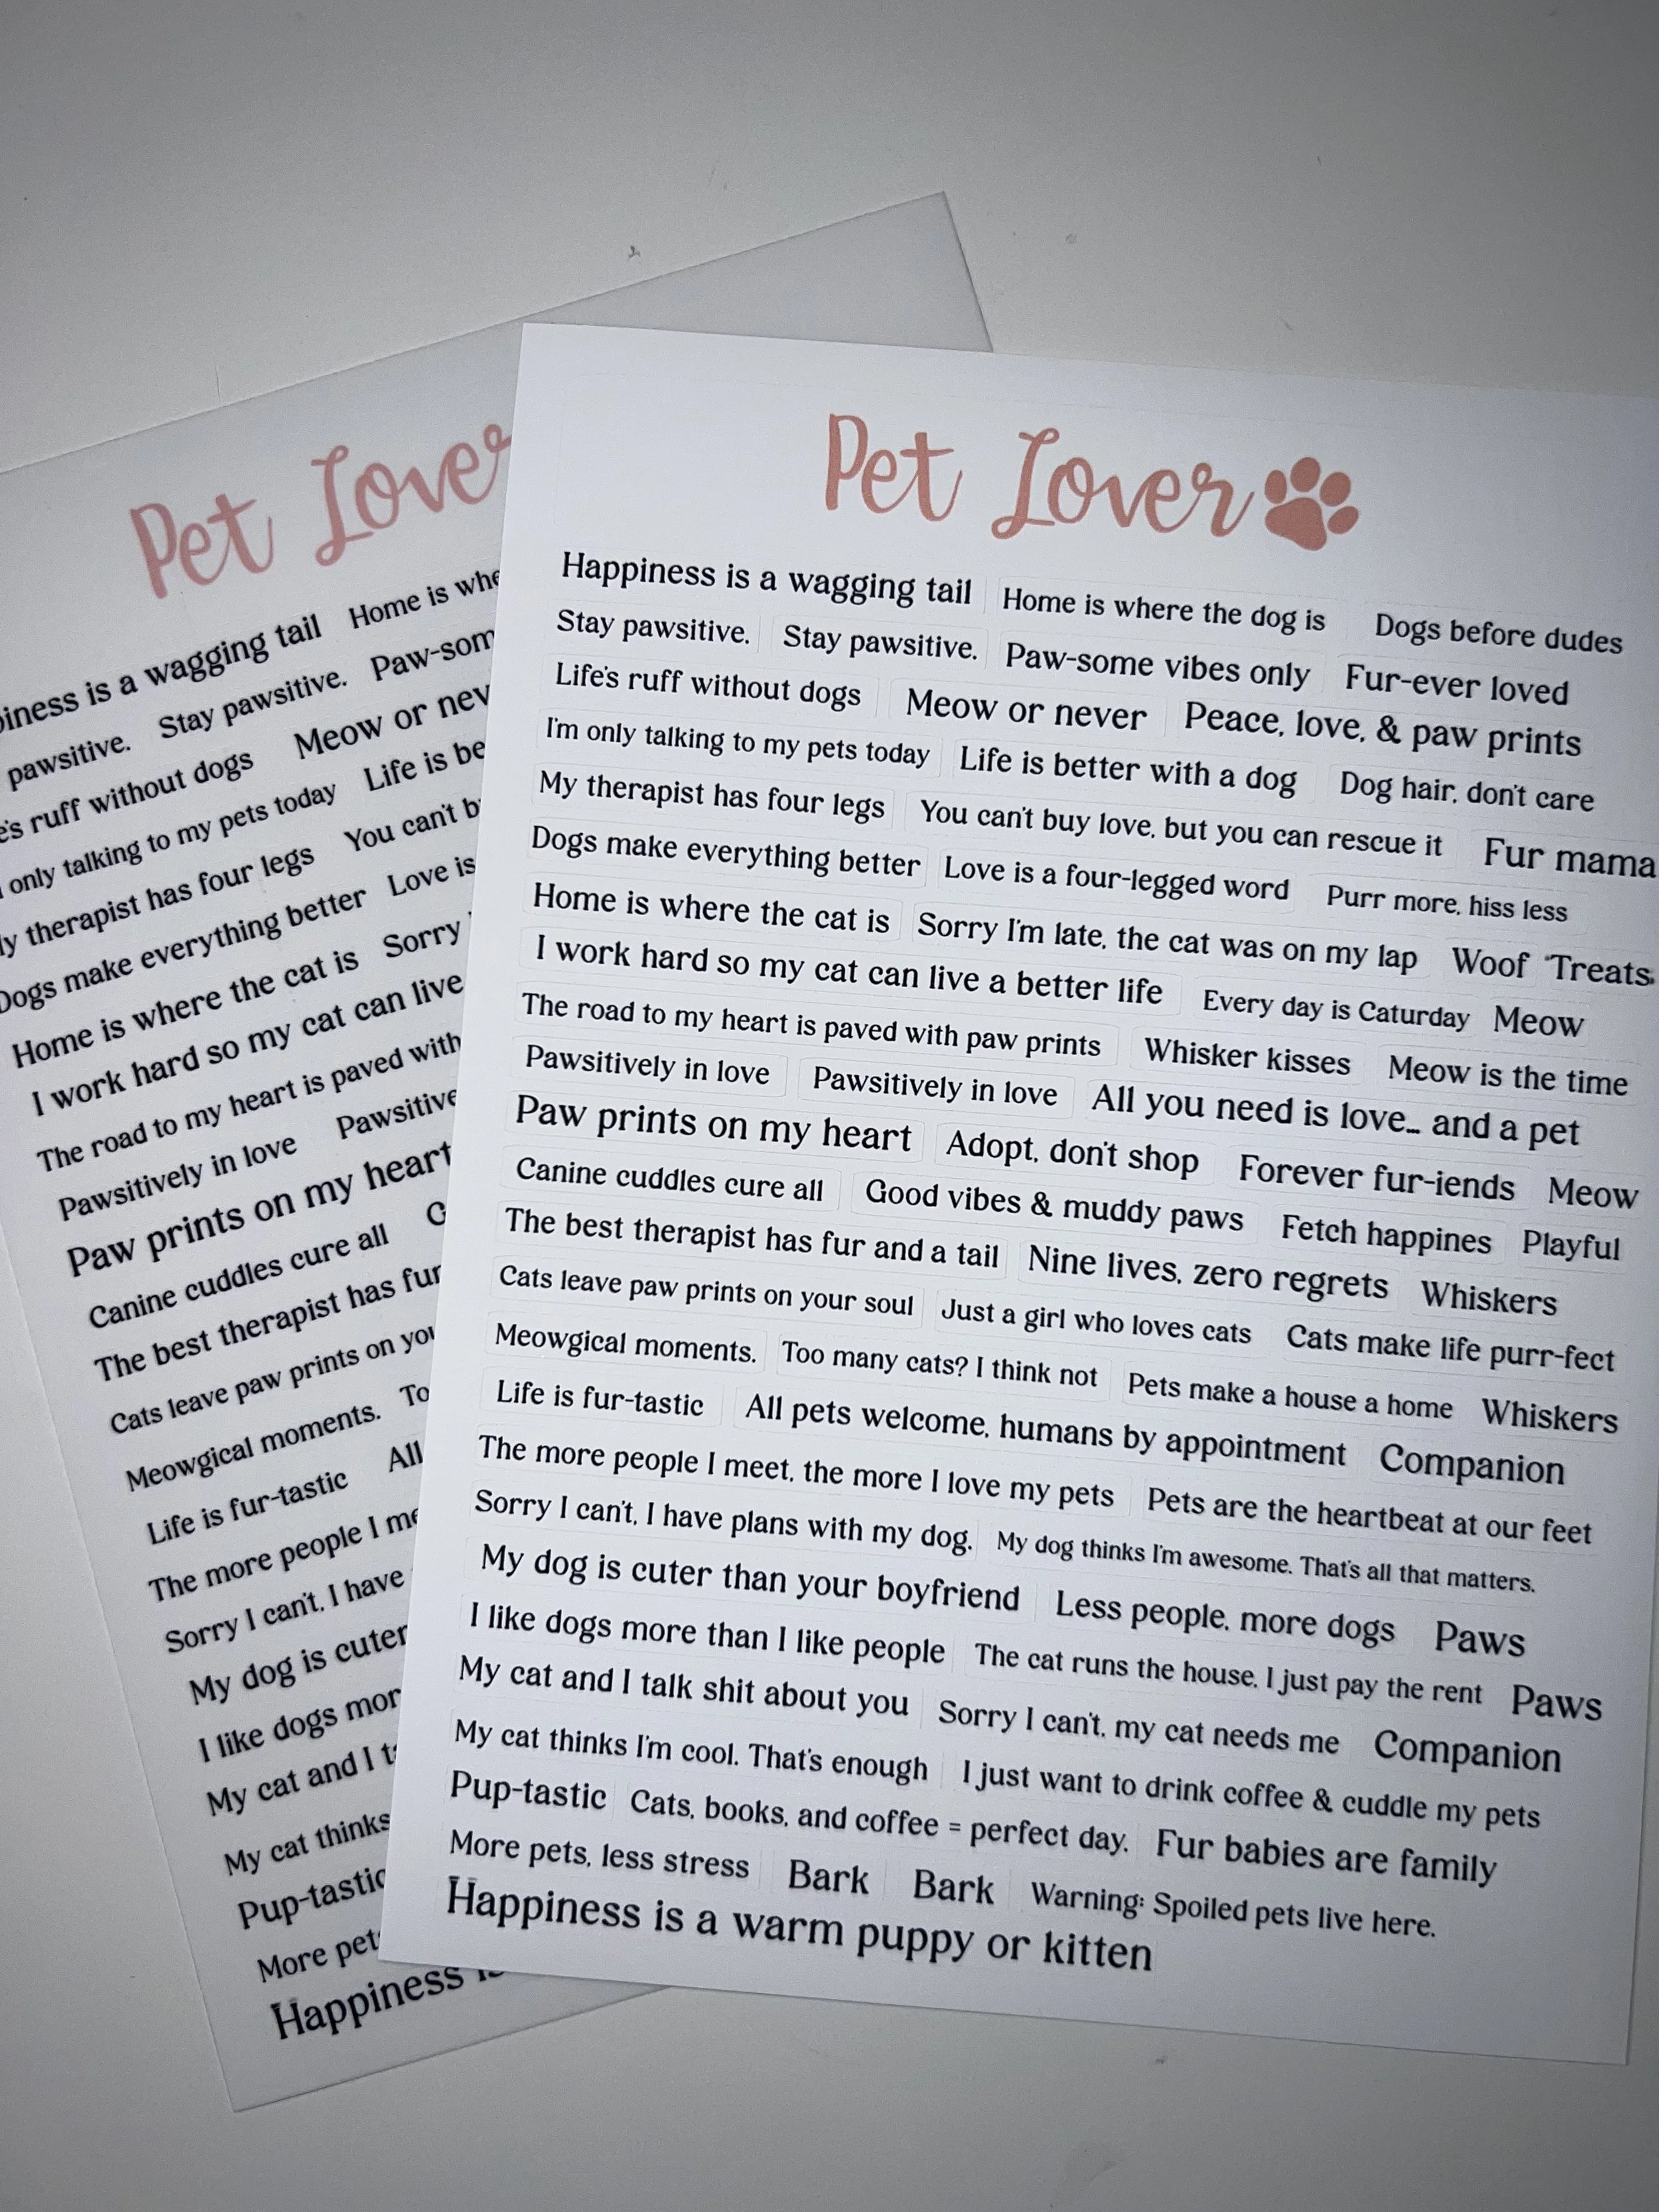 Pet Lover
Happiness is a wagging tail Home is where the dog is Dogs before dudes
Stay pawsitive. Stay pawsitive. Paw-some vibes only Fur-ever loved
Life's ruff without dogs Meow or never Peace, love, & paw prints
I'm only talking to my pets today Life is better with a dog Dog hair, don't care
My therapist has four legs You can't buy love, but you can rescue it Fur mama
Dogs make everything better Love is a four-legged word Purr more, hiss less
Home is where the cat is Sorry I'm late, the cat was on my lap Woof Treats
I work hard so my cat can live a better life Every day is Caturday Meow
The road to my heart is paved with paw prints Whisker kisses Meow is the time
Pawsitively in love Pawsitively in love All you need is love... and a pet
Paw prints on my heart Adopt, don't shop Forever fur-iends Meow
Canine cuddles cure all Good vibes & muddy paws Fetch happines Playful
The best therapist has fur and a tail Nine lives, zero regrets Whiskers
Cats leave paw prints on your soul Just a girl who loves cats Cats make life purr-fect
Meowgical moments. Too many cats? I think not Pets make a house a home Whiskers
Life is fur-tastic All pets welcome, humans by appointment Companion
The more people I meet, the more I love my pets Pets are the heartbeat at our feet
Sorry I can't, I have plans with my dog. My dog thinks I'm awesome. That's all that matters.
My dog is cuter than your boyfriend Less people, more dogs Paws
I like dogs more than I like people The cat runs the house, I just pay the rent Paws
My cat and I talk shit about you Sorry I can't, my cat needs me Companion
My cat thinks I'm cool. That's enough I just want to drink coffee & cuddle my pets
Pup-tastic Cats, books, and coffee = perfect day. Fur babies are family
More pets, less stress Bark Bark Warning: Spoiled pets live here.
Happiness is a warm puppy or kitten
Pet Lover
is a wagging tail Home is
pawsitive. Stay pawsitive.
ruff without dogs Meow or
only talking to my pets today Life is
therapist has four legs You can't
Dogs make everything better Love is
Home is where the cat is Sorry
I work hard so my cat can live
The road to my heart is paved with
Pawsitively in love
Paw prints on my heart
Canine cuddles cure all
The best therapist has fur
Cats leave paw prints on
Meowgical moments.
Life is fur-tastic All
The more people I
Sorry I can't, I have
My dog is cuter
I like dogs
My cat and I
My cat thinks
Pup-tastic
More
Happiness